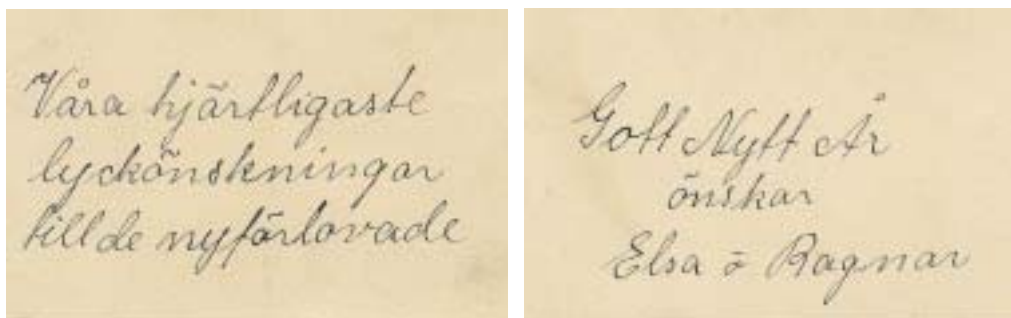 Våra hjärtligaste
lyckönskningar
till de nyförlovade
Gott Nytt År
önskar
Elsa o Ragnar